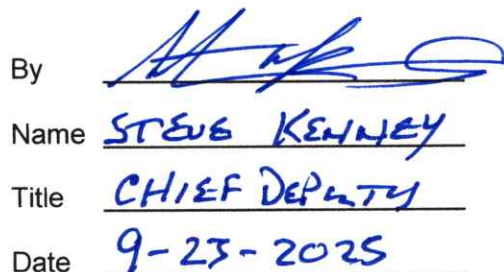 By
Name STEVE KENNEY
Title CHIEF DEPUTY
Date 9-23-2025